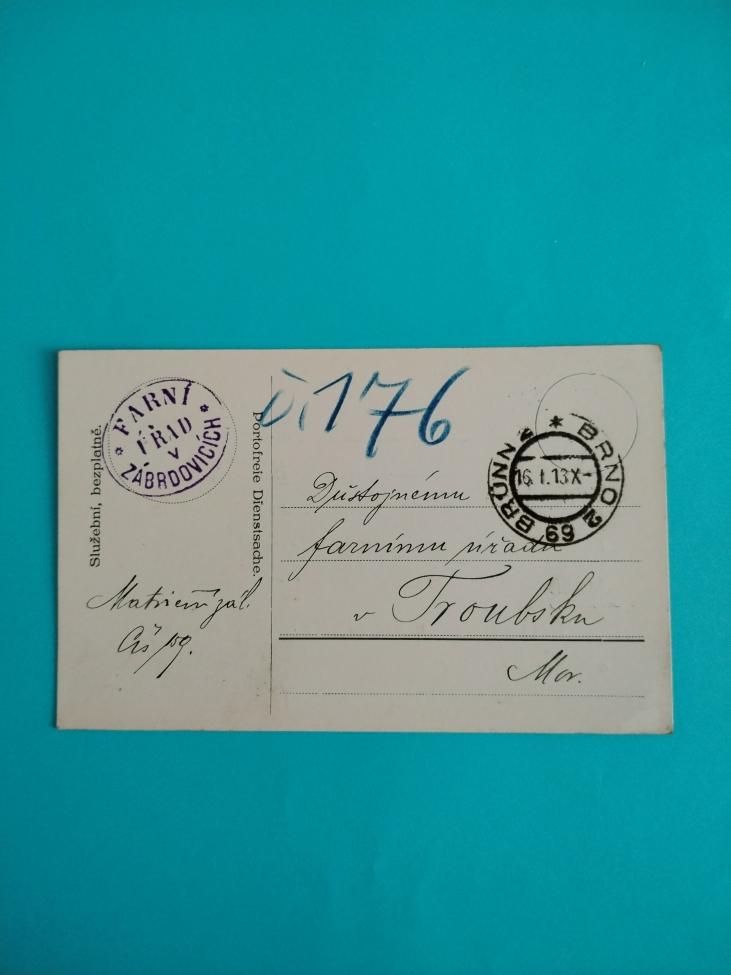 FARNÍ
ÚŘAD
V
ZÁBRDOVICÍCH
Služební, bezplatné.
Portofreie Dienstsache.
Č. 176
BRÜNN 2 * BRNO 2
16.I.13X-
69
Důstojnému
farnímu úřadu
v Troubsku
Mor.
Matriční zál.